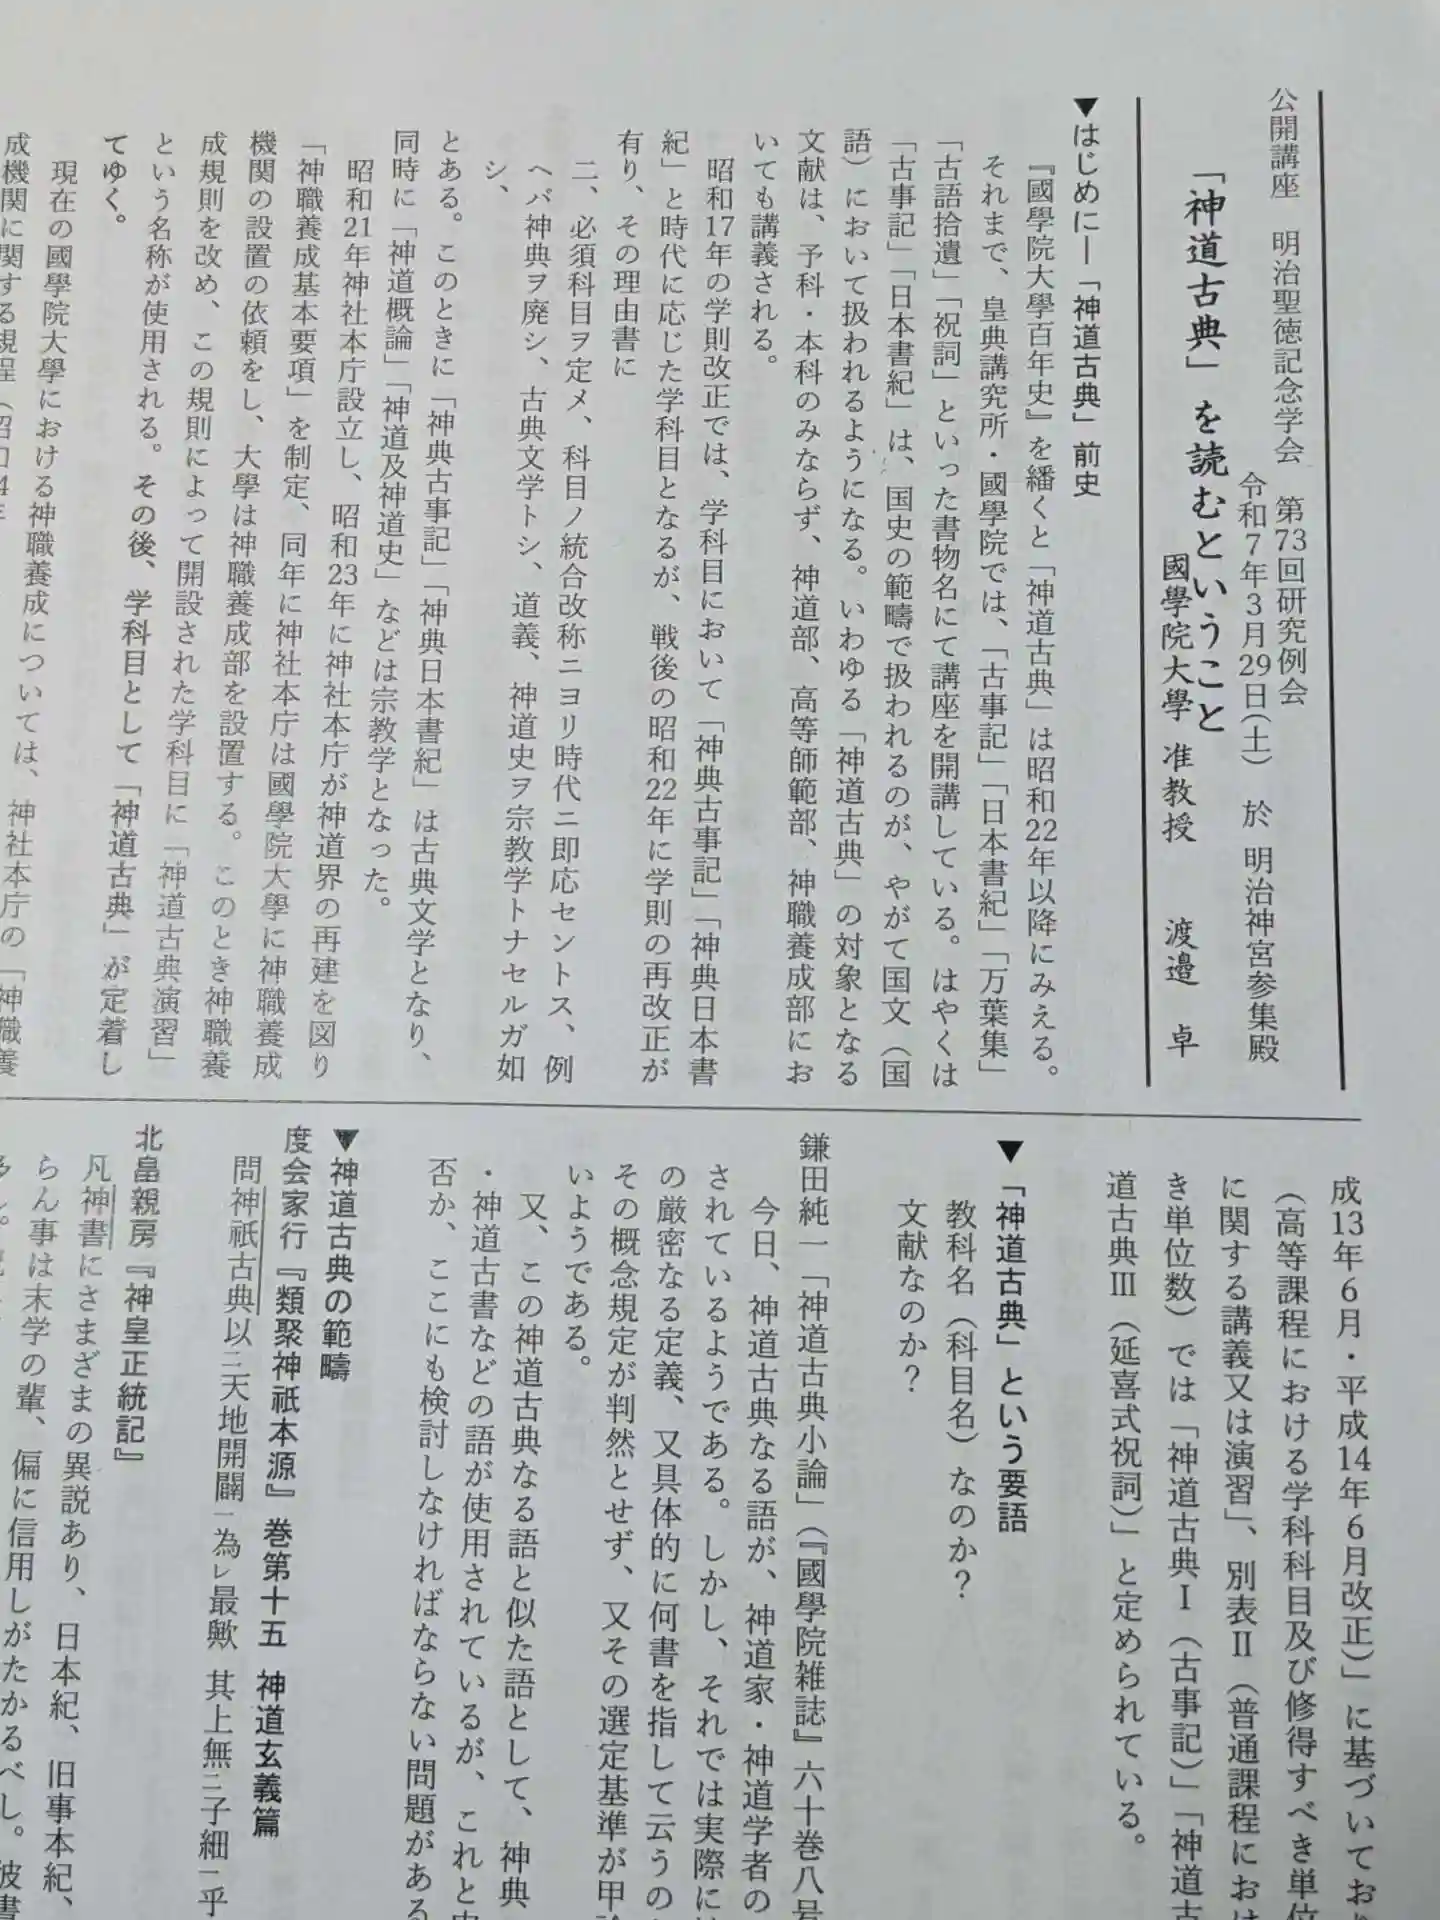 公開講座　明治聖徳記念学会　第73回研究例会
令和7年3月29日(土)　於 明治神宮参集殿
「神道古典」を読むということ
國學院大學 准教授　渡邉　卓
▼はじめに―「神道古典」前史
『國學院大學百年史』を繙くと「神道古典」は昭和22年以降にみえる。
それまで、皇典講究所・國學院では、「古事記」「日本書紀」「万葉集」
「古語拾遺」「祝詞」といった書物名にて講座を開講している。はやくは
「古事記」「日本書紀」は、国史の範疇で扱われるのが、やがて国文（国
語）において扱われるようになる。いわゆる「神道古典」の対象となる
文献は、予科・本科のみならず、神道部、高等師範部、神職養成部にお
いても講義される。
昭和17年の学則改正では、学科目において「神典古事記」「神典日本書
紀」と時代に応じた学科目となるが、戦後の昭和22年に学則の再改正が
有り、その理由書に
二、必須科目ヲ定メ、科目ノ統合改称ニヨリ時代ニ即応セントス、例
ヘバ神典ヲ廃シ、古典文学トシ、道義、神道史ヲ宗教学トナセルガ如
シ、
とある。このときに「神典古事記」「神典日本書紀」は古典文学となり、
同時に「神道概論」「神道及神道史」などは宗教学となった。
昭和21年神社本庁設立し、昭和23年に神社本庁が神道界の再建を図り
「神職養成基本要項」を制定、同年に神社本庁は國學院大學に神職養成
機関の設置の依頼をし、大學は神職養成部を設置する。このとき神職養
成規則を改め、この規則によって開設された学科目に「神道古典演習」
という名称が使用される。その後、学科目として「神道古典」が定着し
てゆく。
現在の國學院大學における神職養成については、神社本庁の「神職養
成機関に関する規程
成13年6月・平成14年6月改正)」に基づいており
（高等課程における学科科目及び修得すべき単位
に関する講義又は演習」、別表Ⅱ（普通課程におけ
き単位数）では「神道古典Ⅰ（古事記）」「神道古
道古典Ⅲ（延喜式祝詞）」と定められている。
▼「神道古典」という要語
教科名（科目名）なのか？
文献なのか？
鎌田純一「神道古典小論」（『國學院雑誌』六十巻八号
今日、神道古典なる語が、神道家・神道学者の
されているようである。しかし、それでは実際に
の厳密なる定義、又具体的に何書を指して云うの
その概念規定が判然とせず、又その選定基準が甲
いようである。
又、この神道古典なる語と似た語として、神典
・神道古書などの語が使用されているが、これと
否か、ここにも検討しなければならない問題がある
▼神道古典の範疇
度会家行『類聚神祇本源』巻第十五　神道玄義篇
問神祇古典以ニ天地開闢一為レ最歟　其上無ニ子細一乎
北畠親房『神皇正統記』
凡神書にさまざまの異説あり、日本紀、旧事本紀、
らん事は末学の輩、偏に信用しがたかるべし。彼書